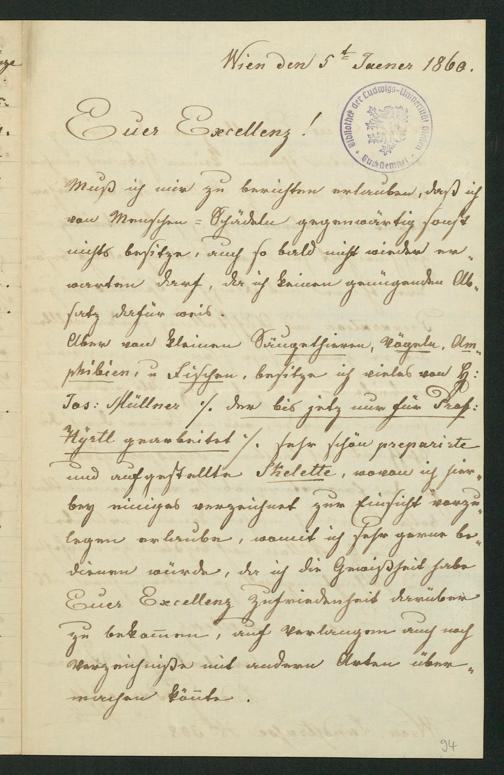 Wien den 5t Jaener 1860.
Bibliothek der Ludwigs-Universität Gießen
Euer Excellenz!
Muß ich mir zu berichten erlauben, daß ich
von Menschen=Schädeln gegenwärtig sonst
nichts besitze, auch so bald nicht wieder er-
warten darf, da ich keinen genügenden Ab-
satz dafür weis.
Aber von kleinen Säugethieren, Vögeln, Am-
phibien, u Fischen, besitze ich vieles von H:
Jos: Müllner ./. der bis jetz nur für Prof:
Hyrtl gearbeitet ./. sehr schön preparirte
und aufgestellte Skelette, wovon ich hier-
bey einiges verzeichnet zur Einsicht vorzu-
legen erlaube, womit ich sehr gerne be-
dienen würde, da ich die Gewißheit habe
Euer Excellenz Zufriedenheit darüber
zu bekommen, auf Verlangen auch noch
Verzeichniße mit andern Arten über-
machen könnte.
94